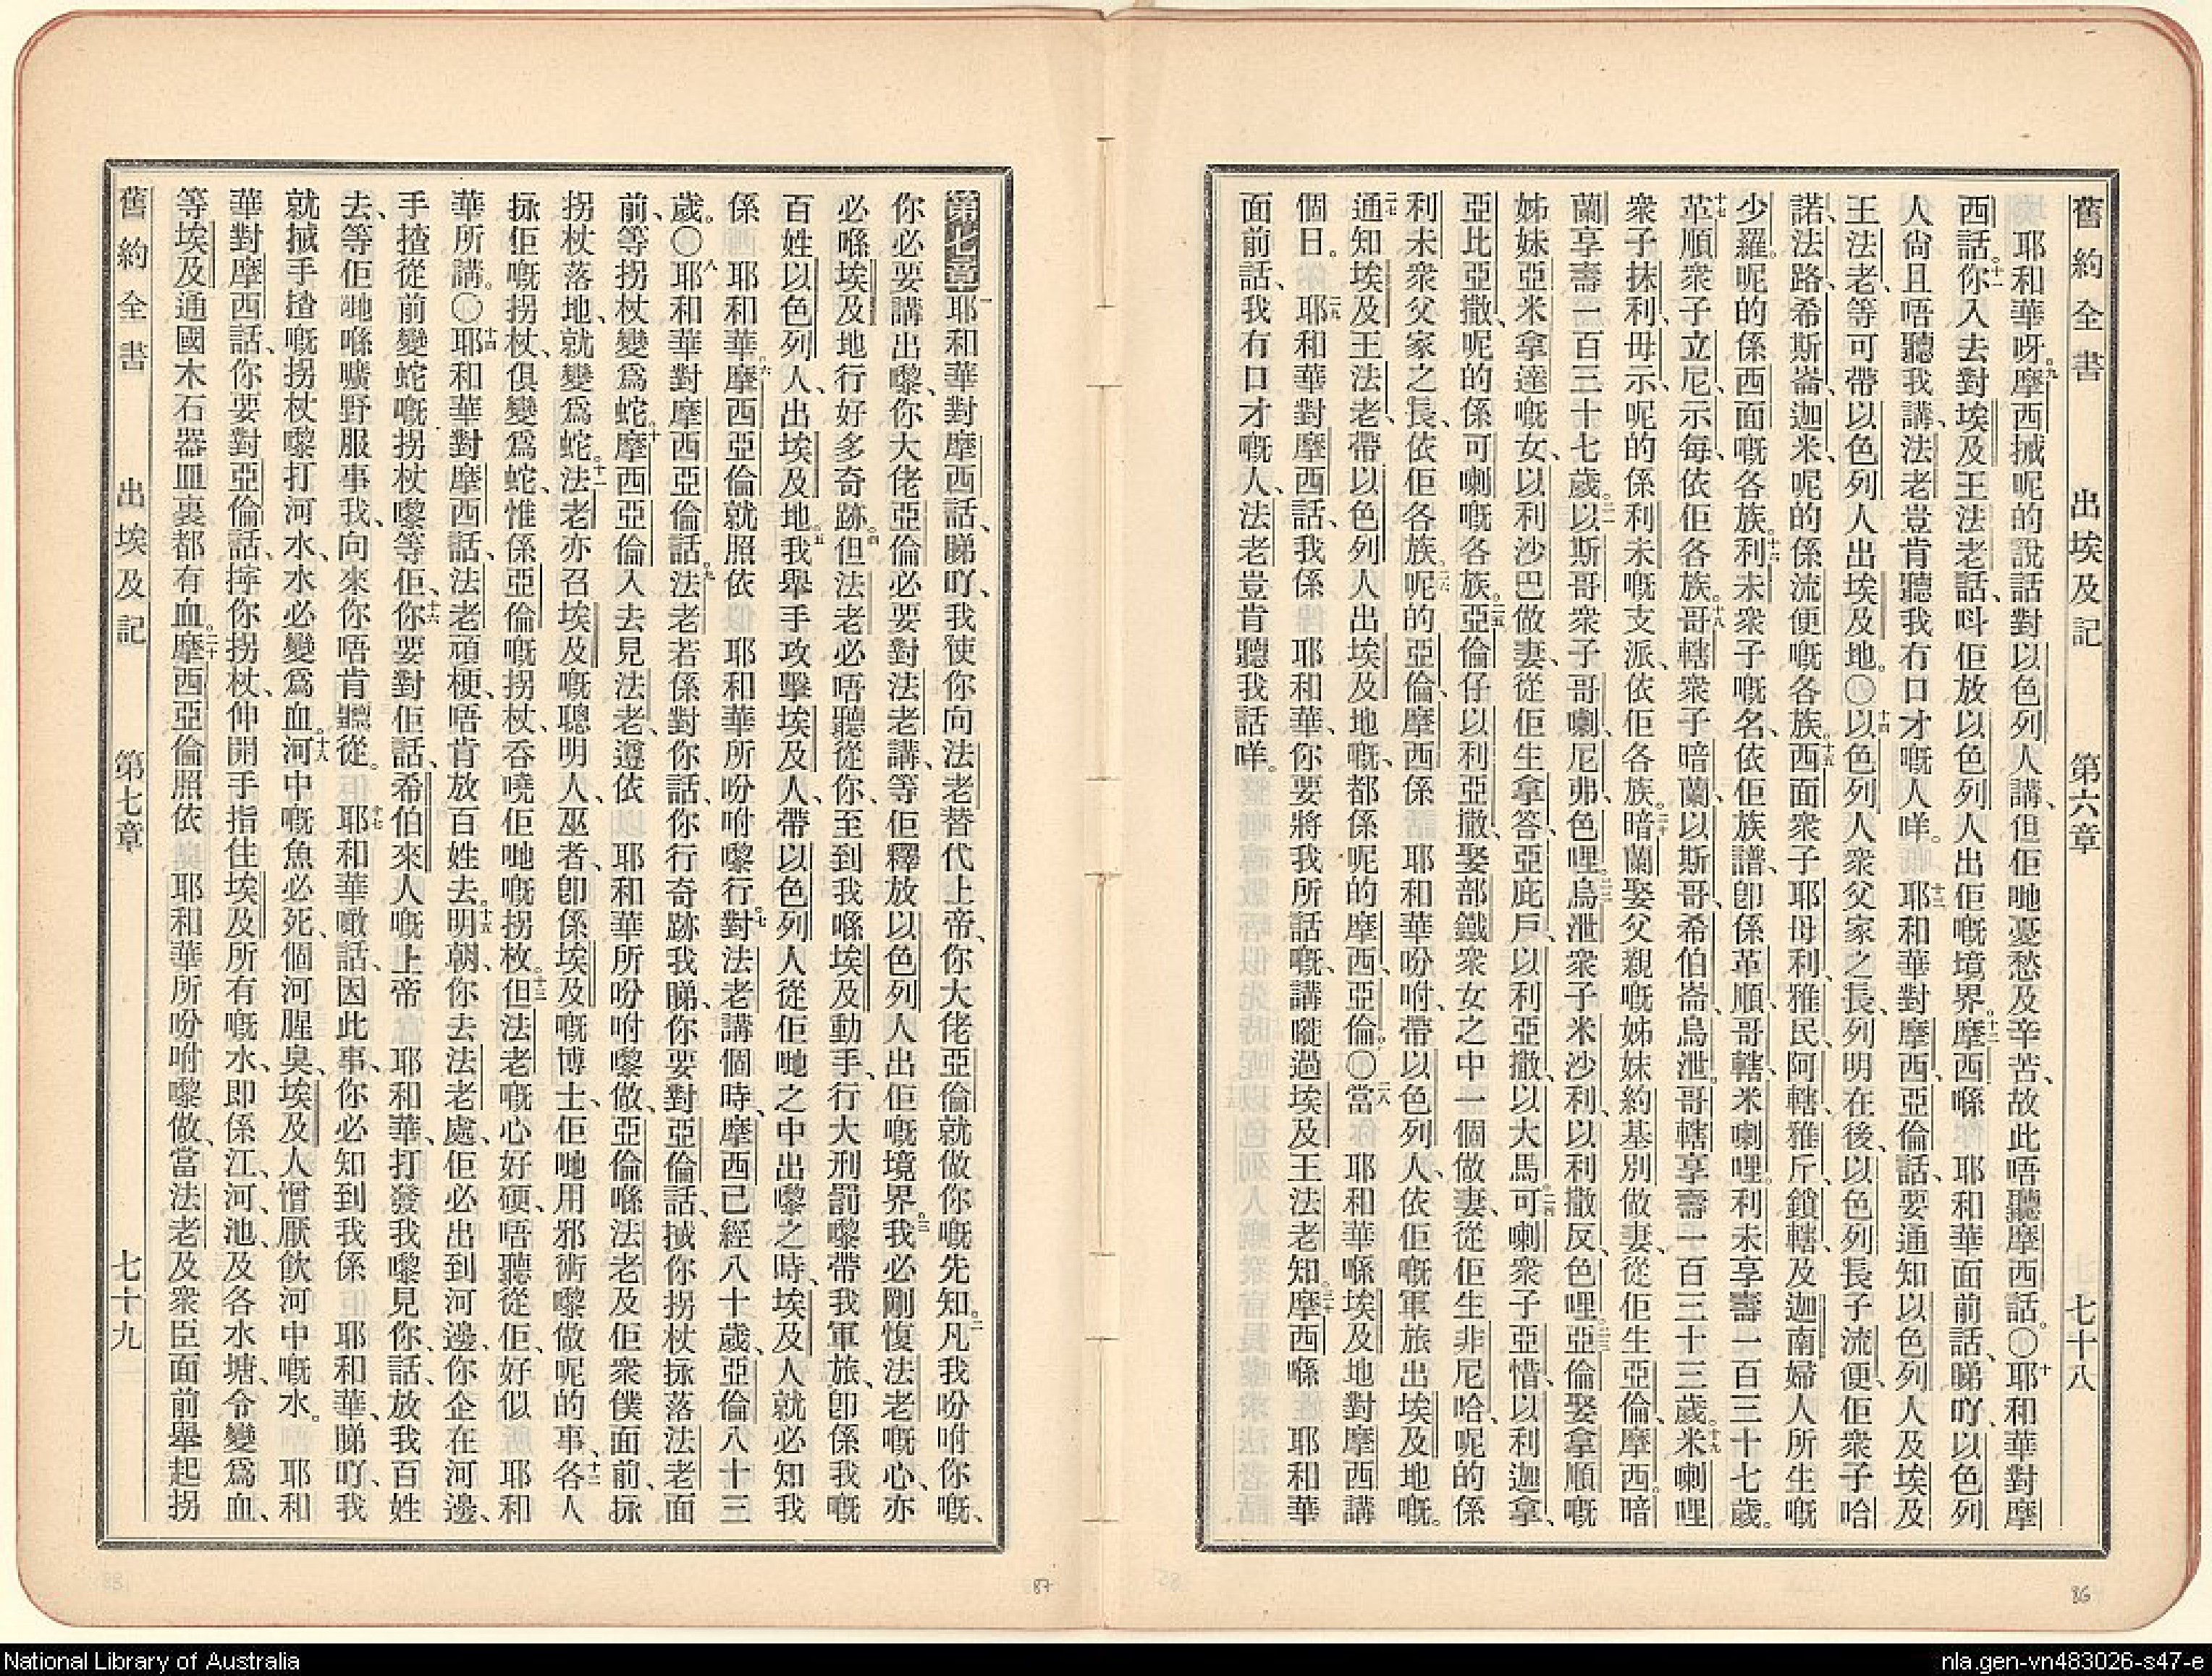 舊約全書　出埃及記　第六章　七十八
耶和華呀。九摩西搣呢的說話對以色列人講、但佢哋憂愁及辛苦、故此唔聽摩西話。〇十耶和華對摩
西話、十一你入去對埃及王法老話、呌佢放以色列人出佢嘅境界。十二摩西喺　耶和華面前話、睇吖、以色列
人尙且唔聽我講、法老豈肯聽我冇口才嘅人咩。　十三耶和華對摩西、亞倫話、要通知以色列人及埃及
王法老、等可帶以色列人出埃及地。〇十四以色列人衆父家之長、列明在後、以色列長子流便、佢衆子哈
諾、法路、希斯崙、迦米、呢的係流便嘅各族。十五西面衆子耶母利、雅民、阿轄、雅斤、鎖轄、及迦南婦人所生嘅
少羅。呢的係西面嘅各族。十六利未衆子嘅名、依佢族譜、卽係革順、哥轄、米喇哩。利未享壽一百三十七歲。
十七革順衆子立尼、示每、依佢各族。十八哥轄衆子暗蘭、以斯哥、希伯崙、烏泄。哥轄享壽一百三十三歲。十九米喇哩
衆子抹利、毋示、呢的係利未嘅支派、依佢各族。二十暗蘭娶父親嘅姊妹約基別做妻、從佢生亞倫、摩西。暗
蘭享壽一百三十七歲。二一以斯哥衆子哥喇、尼弗、色哩。二二烏泄衆子米沙利、以利撒反、色哩。二三亞倫娶拿順嘅
姊妹亞米拿達嘅女、以利沙巴做妻、從佢生拿答、亞庇戶、以利亞撒、以大馬。二四可喇衆子亞惜、以利迦拿、
亞比亞撒、呢的係可喇嘅各族。二五亞倫仔以利亞撒、娶部鐵衆女之中一個做妻、從佢生非尼哈、呢的係
利未衆父家之長、依佢各族。二六呢的亞倫、摩西係　耶和華吩咐、帶以色列人、依佢嘅軍旅出埃及地嘅。
二七通知埃及王法老、帶以色列人出埃及地嘅、都係呢的摩西、亞倫。〇二八當　耶和華喺埃及地對摩西講
個日。　二九耶和華對摩西話、我係　耶和華、你要將我所話嘅、講嚨過埃及王法老知。三十摩西喺　耶和華
面前話、我冇口才嘅人、法老豈肯聽我話咩。
第七章一耶和華對摩西話、睇吖、我使你向法老替代上帝、你大佬亞倫就做你嘅先知。二凡我吩咐你嘅、
你必要講出嚟、你大佬亞倫必要對法老講、等佢釋放以色列人出佢嘅境界。三我必剛愎法老嘅心、亦
必喺埃及地行好多奇跡。四但法老必唔聽從你、至到我喺埃及動手、行大刑罰嚟帶我軍旅、卽係我嘅
百姓以色列人、出埃及地。五我舉手攻擊埃及人、帶以色列人從佢哋之中出嚟之時、埃及人就必知我
係　耶和華。六摩西亞倫就照依　耶和華所吩咐嚟行。七對法老講個時、摩西已經八十歲、亞倫八十三
歲。〇八耶和華對摩西亞倫話。九法老若係對你話、你行奇跡我睇、你要對亞倫話、搣你拐杖掁落法老面
前、等拐杖變爲蛇。十摩西亞倫入去見法老、遵依　耶和華所吩咐嚟做、亞倫喺法老及佢衆僕面前、掁
拐杖落地、就變爲蛇。十一法老亦召埃及嘅聰明人、巫者、卽係埃及嘅博士、佢哋用邪術嚟做呢的事、十二各人
掁佢嘅拐杖、俱變爲蛇、惟係亞倫嘅拐杖、吞嘵佢哋嘅拐枚。十三但法老嘅心好硬、唔聽從佢、好似　耶和
華所講。〇十四耶和華對摩西話、法老頑梗、唔肯放百姓去。十五明朝、你去法老處、佢必出到河邊、你企在河邊、
手揸從前變蛇嘅拐杖嚟等佢、十六你要對佢話、希伯來人嘅上帝　耶和華、打發我嚟見你、話、放我百姓
去、等佢哋喺曠野服事我、向來你唔肯聽從。　十七耶和華噉話、因此事、你必知到我係　耶和華、睇吖、我
就搣手揸嘅拐杖嚟打河水、水必變爲血。十八河中嘅魚必死、個河腥臭、埃及人憎厭飮河中嘅水。　耶和
華對摩西話、你要對亞倫話、擰你拐杖、伸開手指住埃及所有嘅水、即係江、河、池、及各水塘、令變爲血、
等埃及通國木石器皿裏都有血。二十摩西亞倫照依　耶和華所吩咐嚟做、當法老及衆臣面前舉起拐
舊約全書　出埃及記　第七章　七十九
87
86
National Library of Australia
nla.gen-vn483026-s47-e